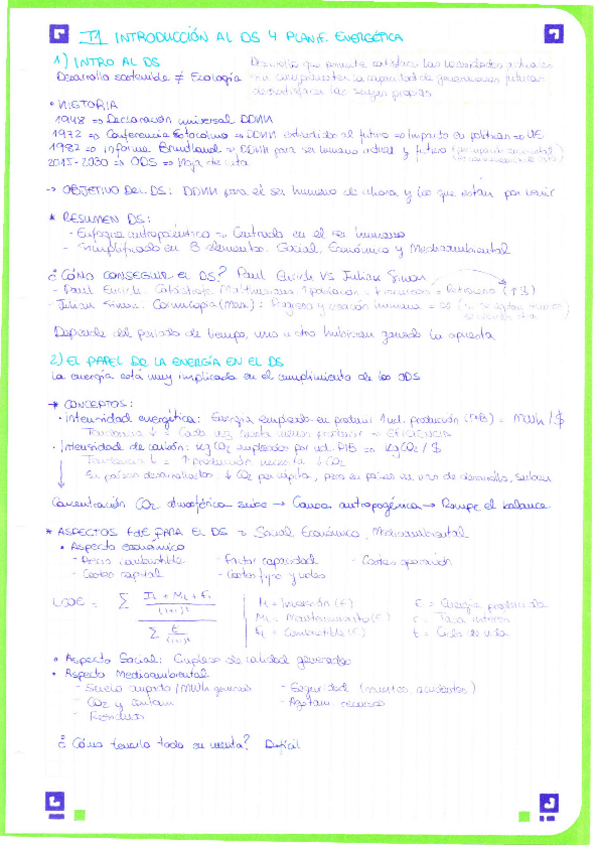 T1 INTRODUCCIÓN AL DS Y PLANIF. ENERGÉTICA
1) INTRO AL DS
Desarrollo sostenible ≠ Ecología
Desarrollo que permite satisfacer las necesidades actuales
sin comprometer la capacidad de generaciones futuras
de satisfacer las suyas propias
• HISTORIA
1948 => Declaración universal DDHH
1972 => Conferencia Estocolmo => DDHH extendidos al futuro => Impacto en políticas => UE
1987 => informe Bruntland => DDHH para ser humano actual y futuro
2015-2030 => ODS => Hoja de ruta
-> OBJETIVO DEL DS: DDHH para el ser humano de ahora y los que están por venir
* RESUMEN DS:
- Enfoque antropocéntrico -> Centrado en el ser humano
- Simplificado en 3 elementos: Social, Económico y Medioambiental
¿CÓMO CONSEGUIR EL DS? Paul Erlich VS Julian Simon
- Paul Erlich: Catástrofe Malthusiana ↑población = Retroceso (↑$)
- Julian Simon: Cornucopia (Mesa): Progreso y creación humana = DS
Depende del periodo de tiempo, uno u otro hubieran ganado la apuesta
2) EL PAPEL DE LA ENERGÍA EN EL DS
La energía está muy implicada en el cumplimiento de los ODS
* CONCEPTOS:
• intensidad energética: Energía empleada en producir 1 ud. producción (PIB) = MWh/$
Tendencia ↓ = Cada vez cuesta menos producir = EFICIENCIA
• Intensidad de carbón: kg CO2 empleados por ud. PIB => kg CO2/$
Tendencia ↓ = ↑ producción necesita ↓ CO2
En países desarrollados ↓ CO2 per cápita, pero en países en vías de desarrollo, suben
Concentración CO2 atmosférica sube -> Causa antropogénica -> Rompe el balance
* ASPECTOS PARA EL DS -> Social, Económico, Medioambiental
• Aspecto económico
- Precio combustible - Factor capacidad - Costes operación
- Costes capital - Costes fijos y vbles
LCOE = Σ (It + Mt + Ft)/(1+r)^t / Σ E/(1+r)^t
It = Inversión (€) E = Energía producida
Mt = Mantenimiento (€) r = Tasa interés
Ft = Combustible (€) t = Ciclo de vida
• Aspecto Social: Empleos de calidad generados
• Aspecto Medioambiental
- Suelo ocupado / MWh generado - Seguridad (muertes, accidentes)
- CO2 y - Agotam. recursos
- Residuos
¿Cómo tenerlo todo en cuenta? Difícil